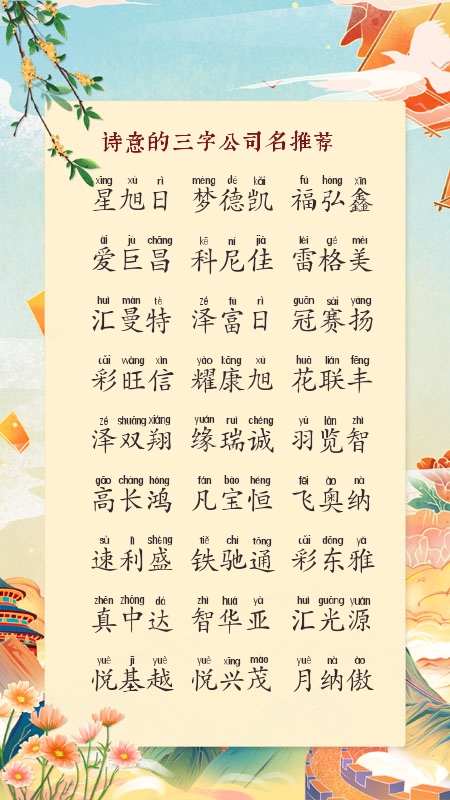 诗意的三字公司名推荐
xīng xù rì mèng dé kǎi fú hóng xīn
星旭日 梦德凯 福弘鑫
ài jù chāng kē ní jiā léi gé měi
爱巨昌 科尼佳 雷格美
huì màn tè zé fù rì guān sài yáng
汇曼特 泽富日 冠赛扬
cǎi wàng xìn yào kāng xù huā lián fēng
彩旺信 耀康旭 花联丰
zé shuāng xiáng yuán ruì chéng yǔ lǎn zhì
泽双翔 缘瑞诚 羽览智
gāo cháng hóng fán bǎo héng fēi ào nà
高长鸿 凡宝恒 飞奥纳
sù lì shèng tiě chí tōng cǎi dōng yǎ
速利盛 铁驰通 彩东雅
zhēn zhōng dá zhì huá yà huì guāng yuán
真中达 智华亚 汇光源
yuè jī yuè yuè xīng mào yuè nà ào
悦基越 悦兴茂 月纳傲